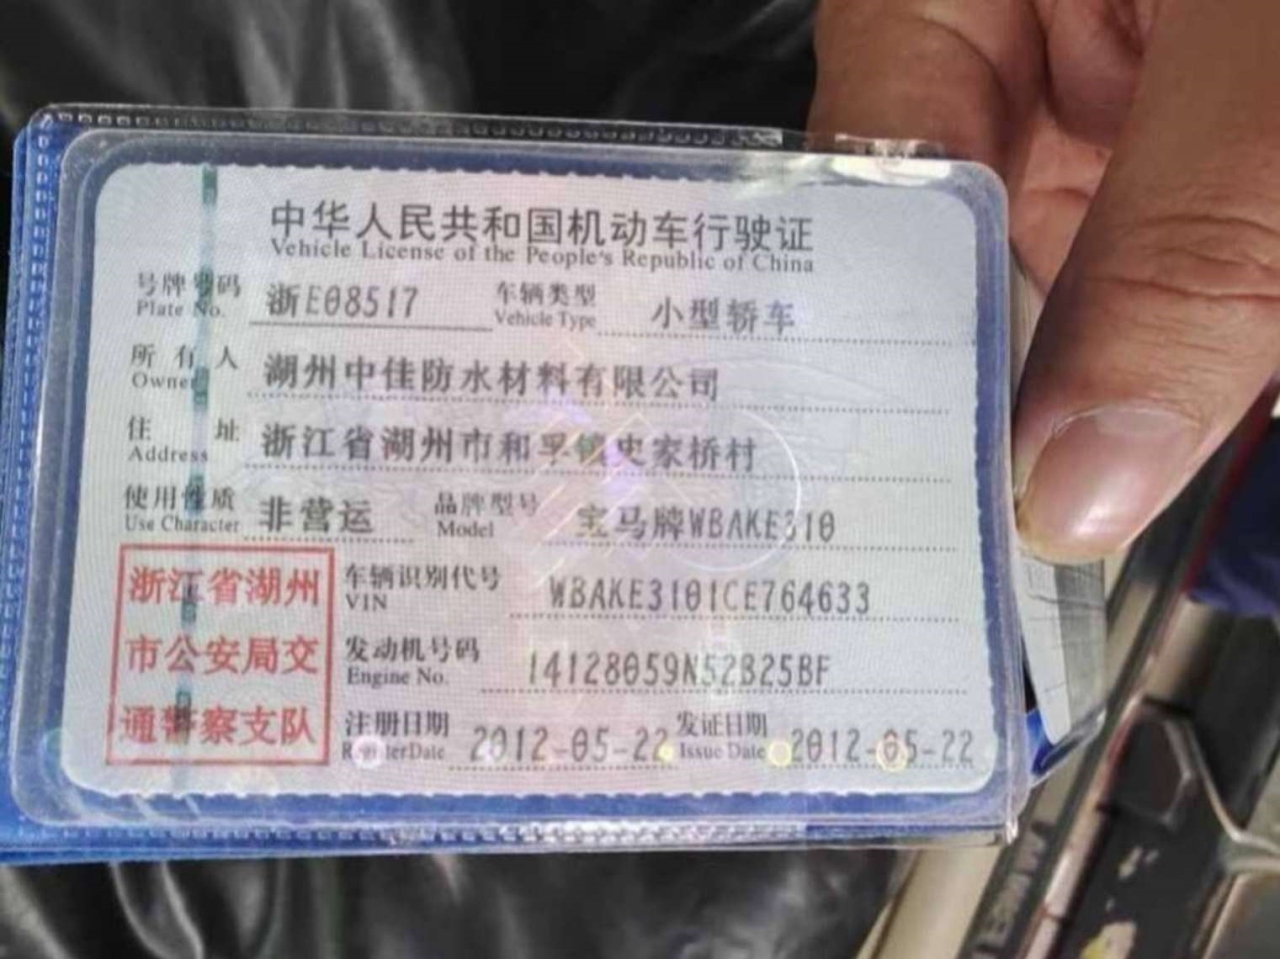 中华人民共和国机动车行驶证
Vehicle License of the People's Republic of China
号牌号码 浙E08517 车辆类型 小型轿车
Plate No. Vehicle Type
所有人 湖州中佳防水材料有限公司
Owner
住址 浙江省湖州市和孚镇史家桥村
Address
使用性质 非营运 品牌型号 宝马牌WBAKE310
Use Character Model
浙江省湖州
市公安局交
通警察支队
车辆识别代号 WBAKE3101CE764633
VIN
发动机号码 14128059N52B25BF
Engine No.
注册日期 2012-05-22 发证日期 2012-05-22
Register Date Issue Date